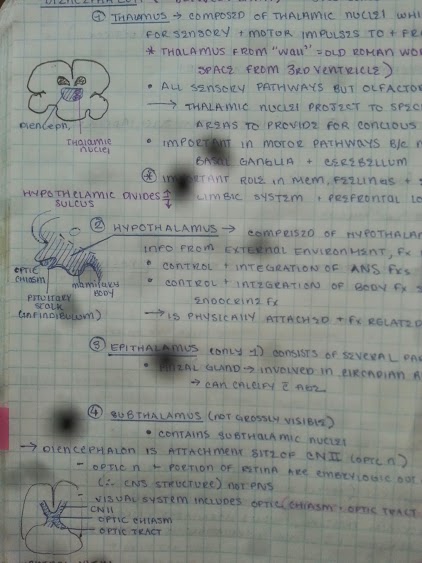 ① THALAMUS → COMPOSED OF THALAMIC NUCLEI WHI
FOR SENSORY + MOTOR IMPULSES TO + FR
* THALAMUS FROM "WALL" = OLD ROMAN WOR
SPACE FROM 3RD VENTRICLE)
• ALL SENSORY PATHWAYS BUT OLFACTOR
→ THALAMIC NUCLEI PROJECT TO SPEC
AREAS TO PROVIDE FOR CONCIOUS
• IMPORTANT IN MOTOR PATHWAYS B/C
BASAL GANGLIA + CEREBELLUM
* IMPORTANT ROLE IN MEM, FEELINGS +
LIMBIC SYSTEM + PREFRONTAL LO
DIENCEPH.
THALAMIC
NUCLEI
HYPOTHELAMIC DIVIDES
SULCUS
② HYPOTHALAMUS → COMPRISED OF HYPOTHALAM
INFO FROM EXTERNAL ENVIRONMENT, FX
• CONTROL + INTEGRATION OF ANS FXS
• CONTROL + INTEGRATION OF BODY FX
ENDOCRINE FX
→ IS PHYSICALLY ATTACHED + FX RELATED
OPTIC
CHIASM
MAMILLARY
BODY
PITUITARY
STALK
(INFINDIBULUM)
③ EPITHALAMUS (ONLY 1) CONSISTS OF SEVERAL PA
• PINEAL GLAND → INVOLVED IN CIRCADIAN
→ CAN CALCIFY C̄ AGE
④ SUBTHALAMUS (NOT GROSSLY VISIBLE)
• CONTAINS SUBTHALAMIC NUCLEI
→ DIENCEPHALON IS ATTACHMENT SITE OF CN II (OPTIC N)
- OPTIC N + PORTION OF RETINA ARE EMBRYLOGIC OUT
(∴ CNS STRUCTURE) NOT PNS
- VISUAL SYSTEM INCLUDES OPTIC CHIASM + OPTIC TRACT
CN II
OPTIC CHIASM
OPTIC TRACT